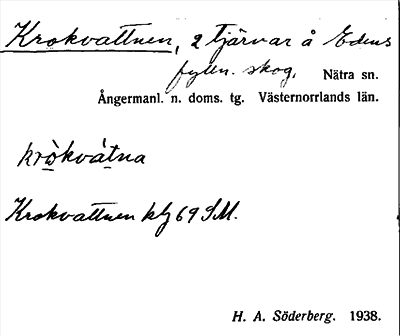 Krokvattnen, 2 tjärnar å Edens
fylln. skog. Nätra sn.
Ångermanl. n. doms. tg. Västernorrlands län.
kròkvátna
Krokvattnen kbl 69 SM.
H. A. Söderberg. 1938.